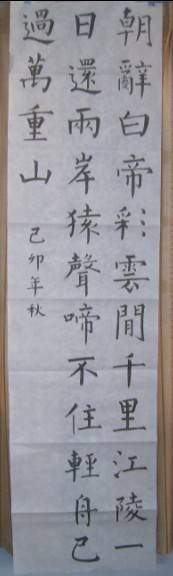 朝辭白帝彩雲間千里江陵一
日還兩岸猿聲啼不住輕舟已
過萬重山
己卯年秋